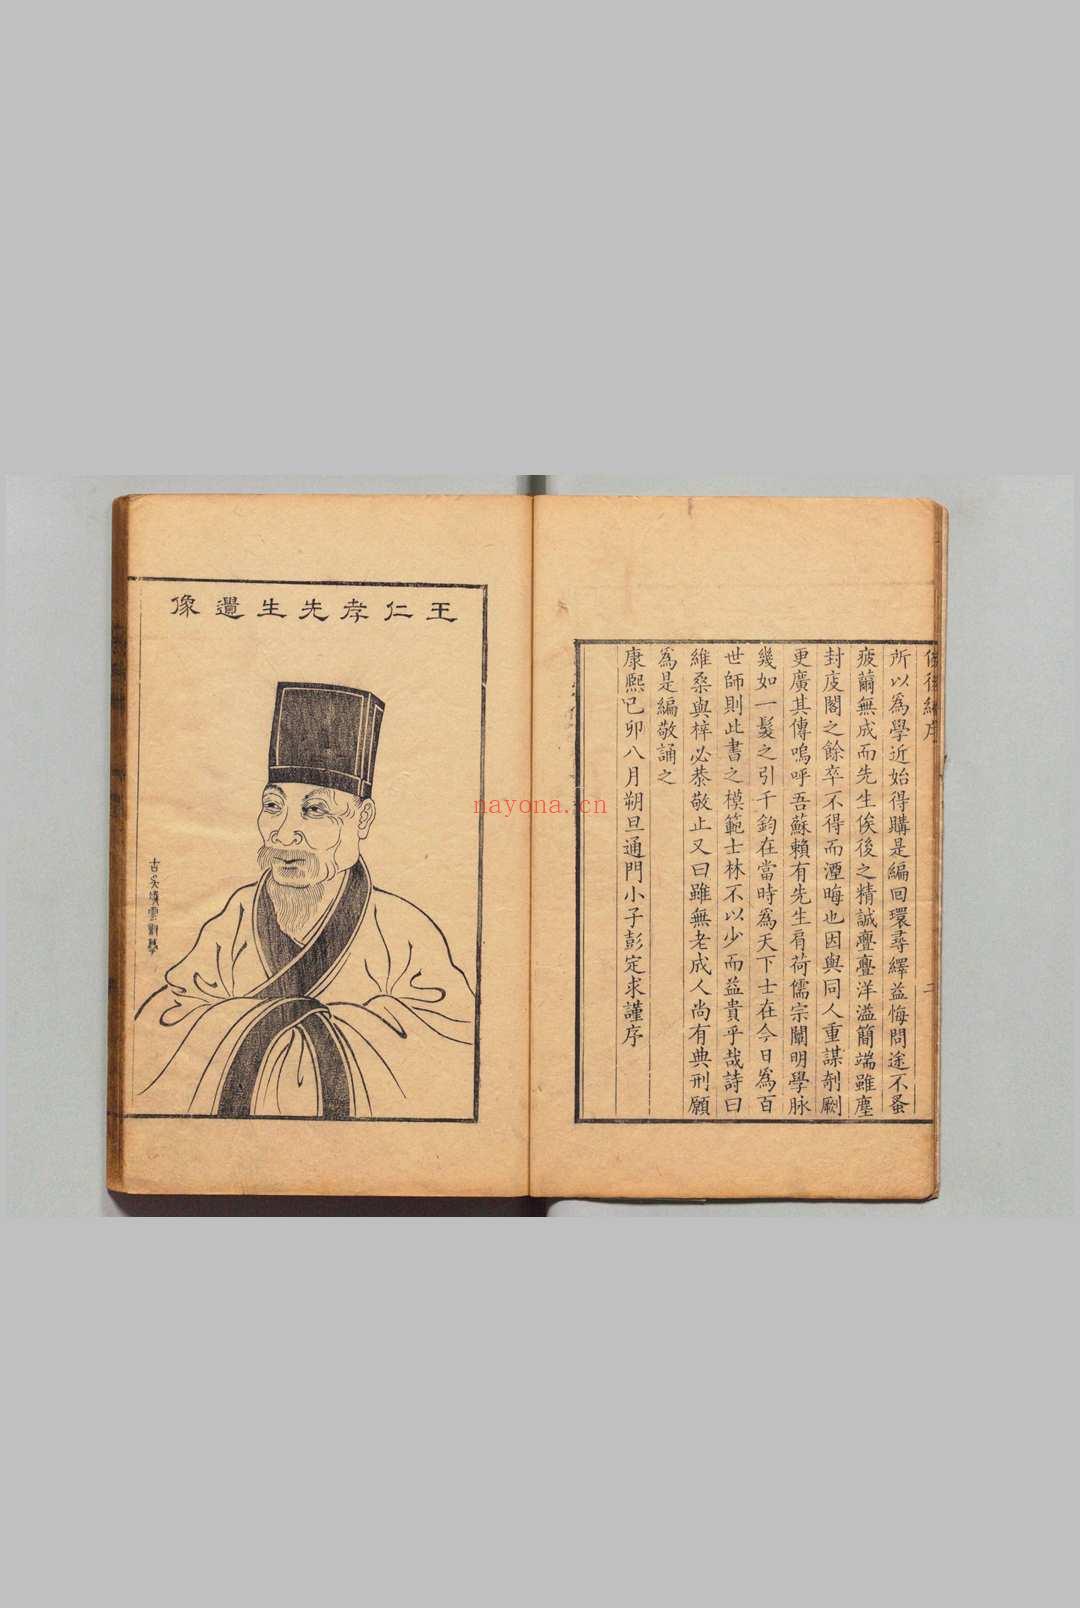 所以為學近始得購是編回環尋繹益悔問途不蚤
疲薾無成而先生俟後之精誠亹亹洋溢簡端雖塵
封庋閣之餘卒不得而湮晦也因與同人重謀剞劂
更廣其傳嗚呼吾蘇賴有先生肩荷儒宗闡明學脉
幾如一髮之引千鈞在當時為天下士在今日為百
世師則此書之模範士林不以少而益貴乎哉詩曰
維桑與梓必恭敬止又曰雖無老成人尚有典刑願
為是編敬誦之
康熙己卯八月朔旦通門小子彭定求謹序
二
王仁孝先生遺像
nayona.cn